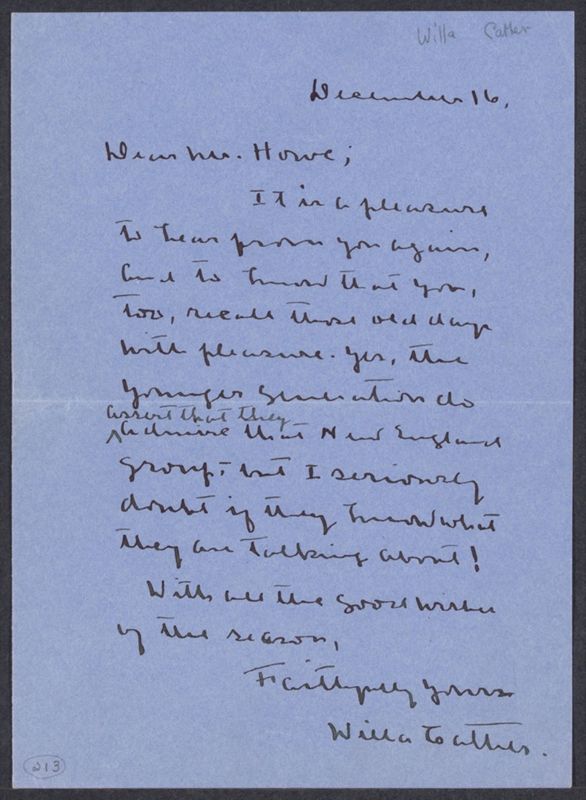 Willa Cather
December 16.
Dear Mr. Howe;
It is a pleasure
to hear from you again,
and to know that you,
too, recall those old days
with pleasure. Yes, the
younger generation do
assert that they
admire that New England
group,- but I seriously
doubt if they know what
they are talking about!
With all the good wishes
of the season,
Faithfully yours
Willa Cather.
213